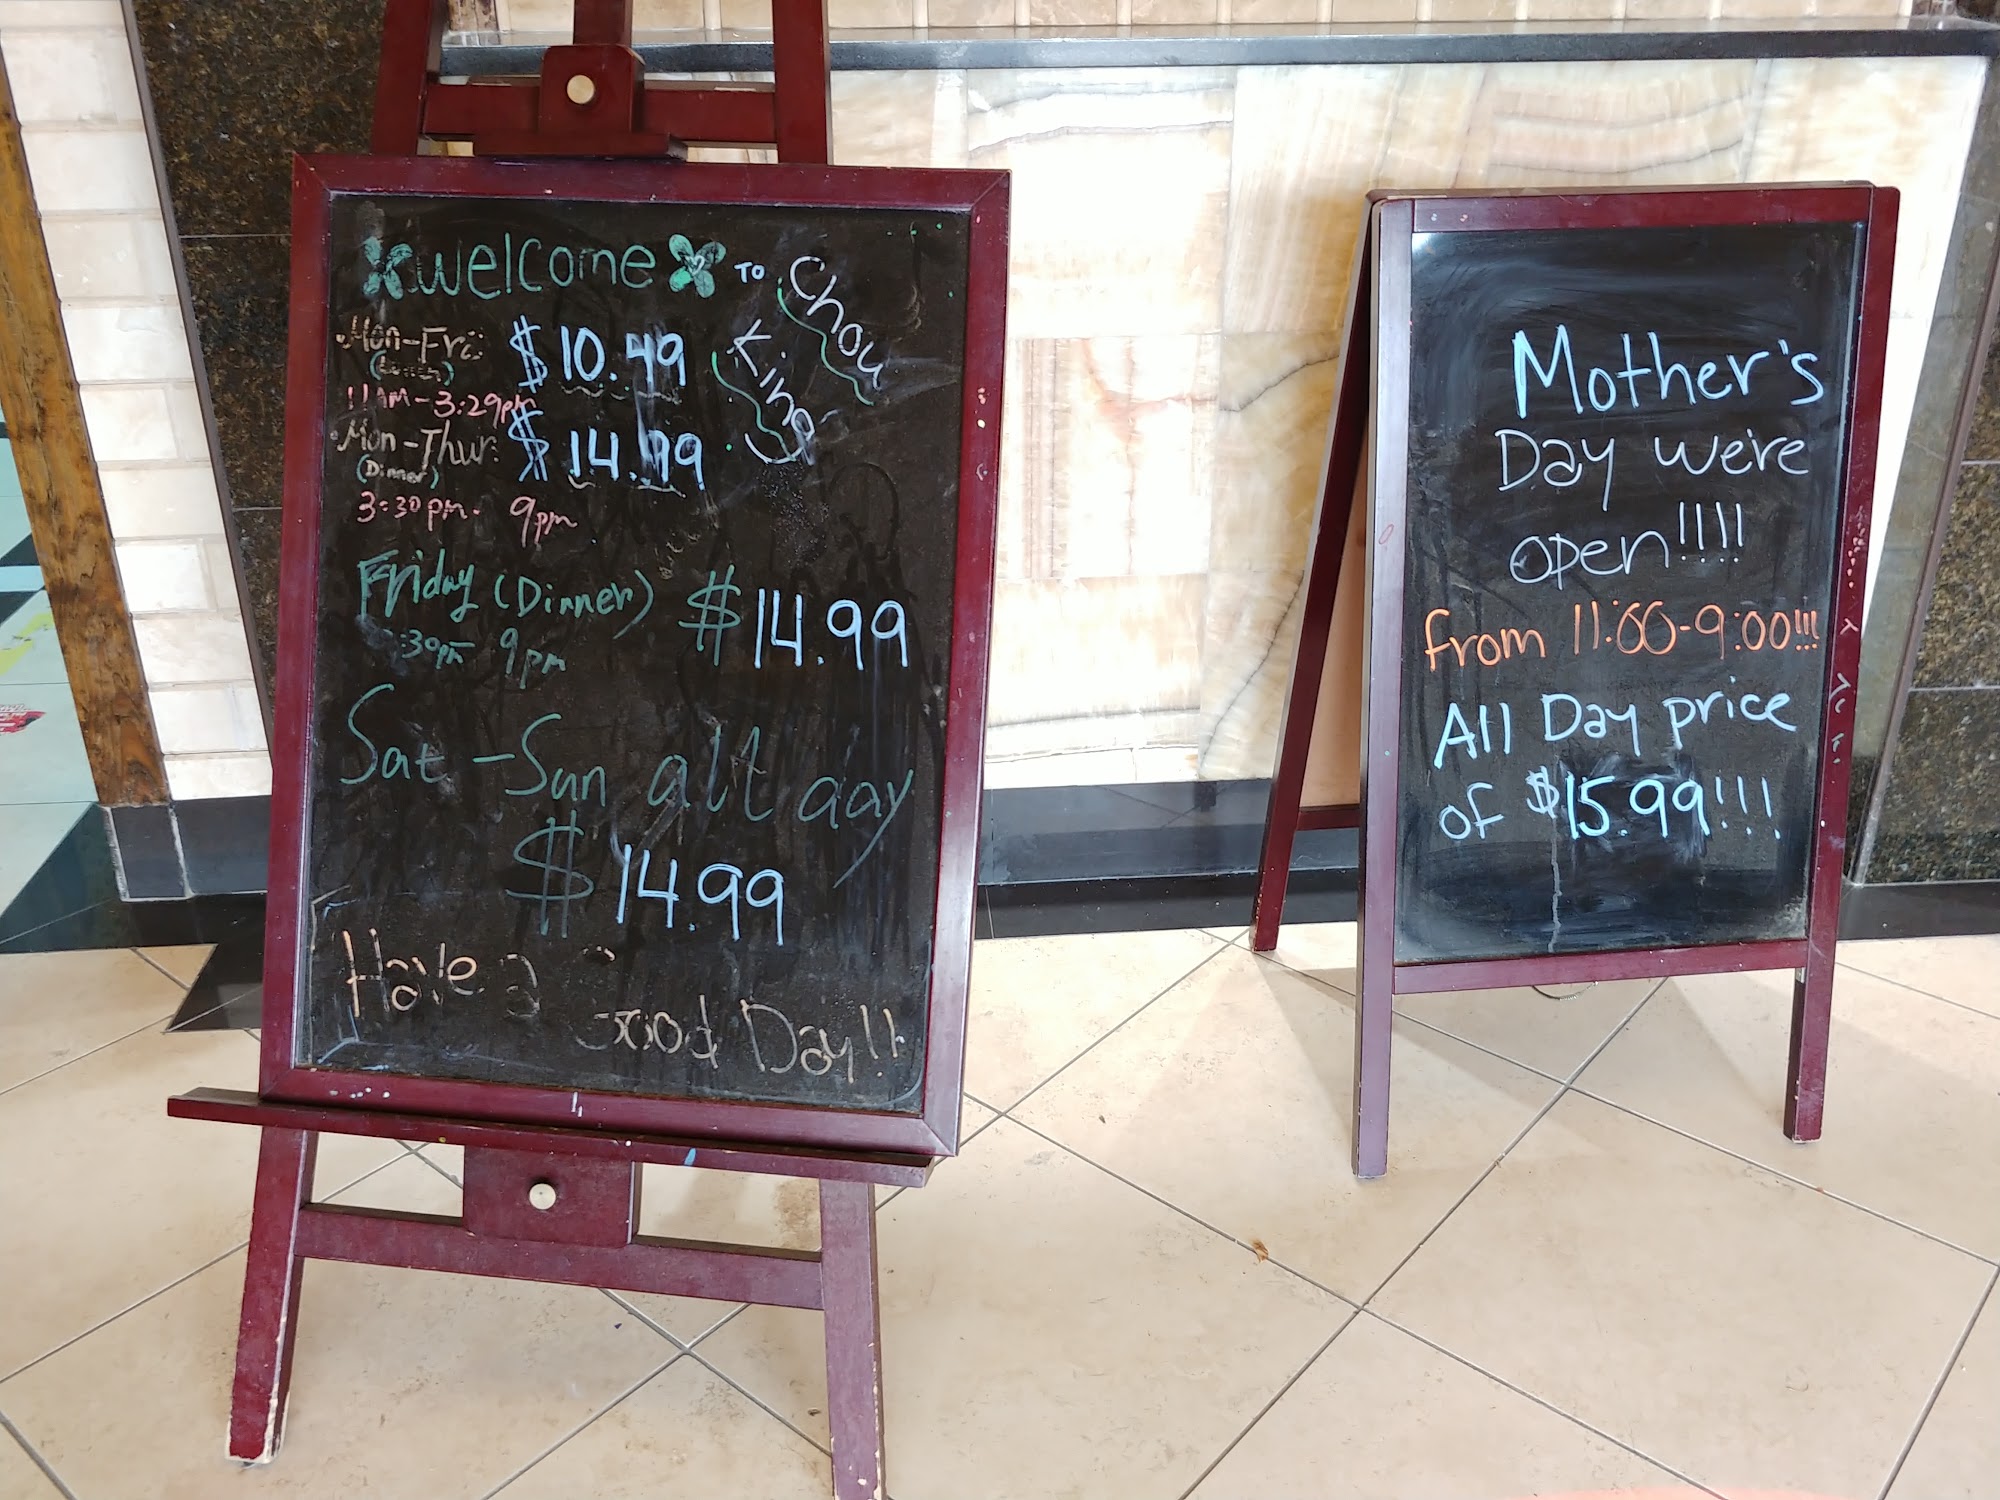 welcome TO Chou King
Mon-Fri: $10.49
(Lunch)
11AM-3:29pm
Mon-Thur: $14.99
(Dinner)
3:30pm- 9pm
Friday (Dinner) $14.99
:30pm 9pm
Sat-Sun all day
$14.99
Have a Good Day!!
Mother's
Day we're
open!!!!
from 11:00-9:00!!!
All Day price
of $15.99!!!